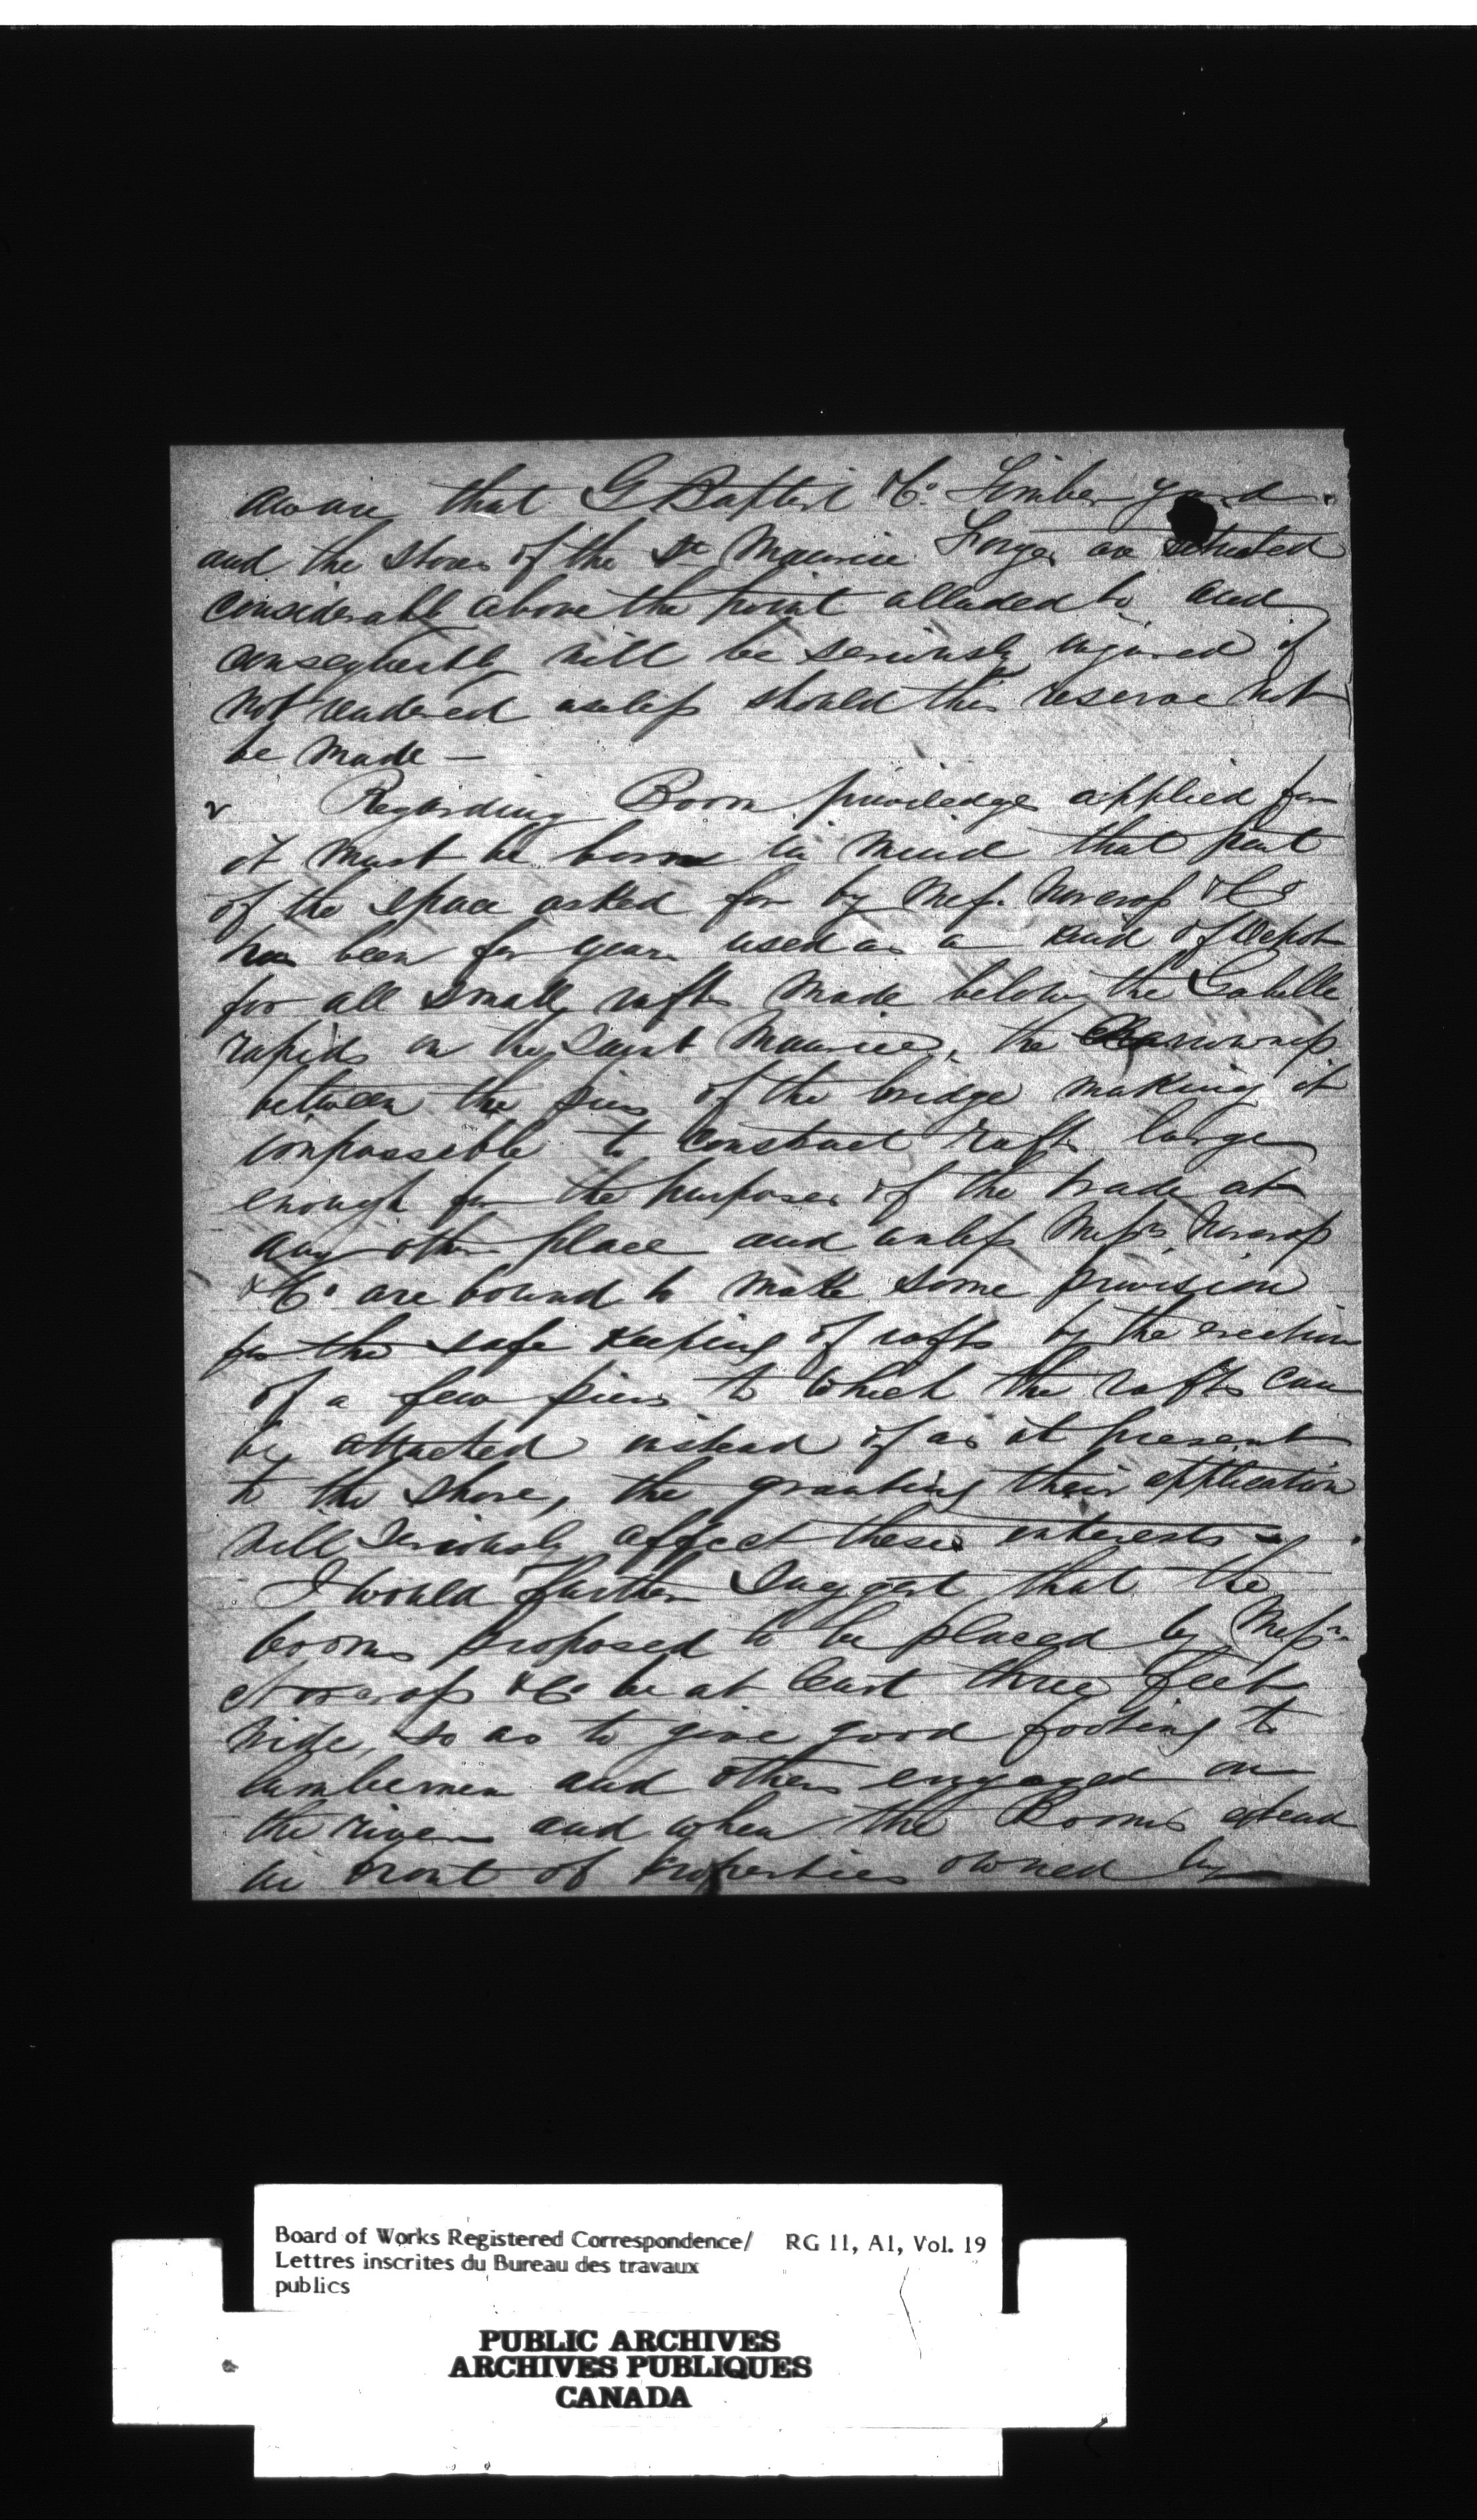 aware that G Baptist & Co. Timber yard
and the stores of the St Maurice Forges are situated
considerable above the point alluded to and
consequently will be seriously injured if
not rendered useless should this reserve not
be made —
Regarding Boom priviledge applied for
it must be borne in mind that part
of the space asked for by Mess. Norcross & Co
has been for years used as a kind of Depot
for all small rafts made below the Gabelle
rapids on the Saint Maurice, the narrowness
between the piers of the bridge making it
impossible to construct rafts large
enough for the purposes of the trade at
any other place and unless Messrs. Norcross
& Co. are bound to make some provision
for the safe keeping of rafts by the erection
of a few piers to which the rafts can
be attached instead of as at present
to the shore, the granting their application
will seriously affect these interests —
I would further suggest that the
booms proposed to be placed by Messrs.
Norcross & Co be at least three feet
wide, so as to give good footing to
lumbermen and others engaged on
the river and when the Booms extend
in front of properties owned by
Board of Works Registered Correspondence/ RG 11, A1, Vol. 19
Lettres inscrites du Bureau des travaux
publics
PUBLIC ARCHIVES
ARCHIVES PUBLIQUES
CANADA